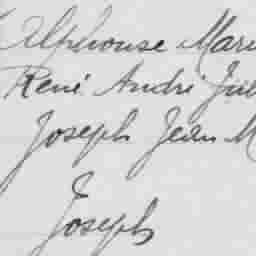 Alphonse Mari
René André Jul
Joseph Jean M
Joseph